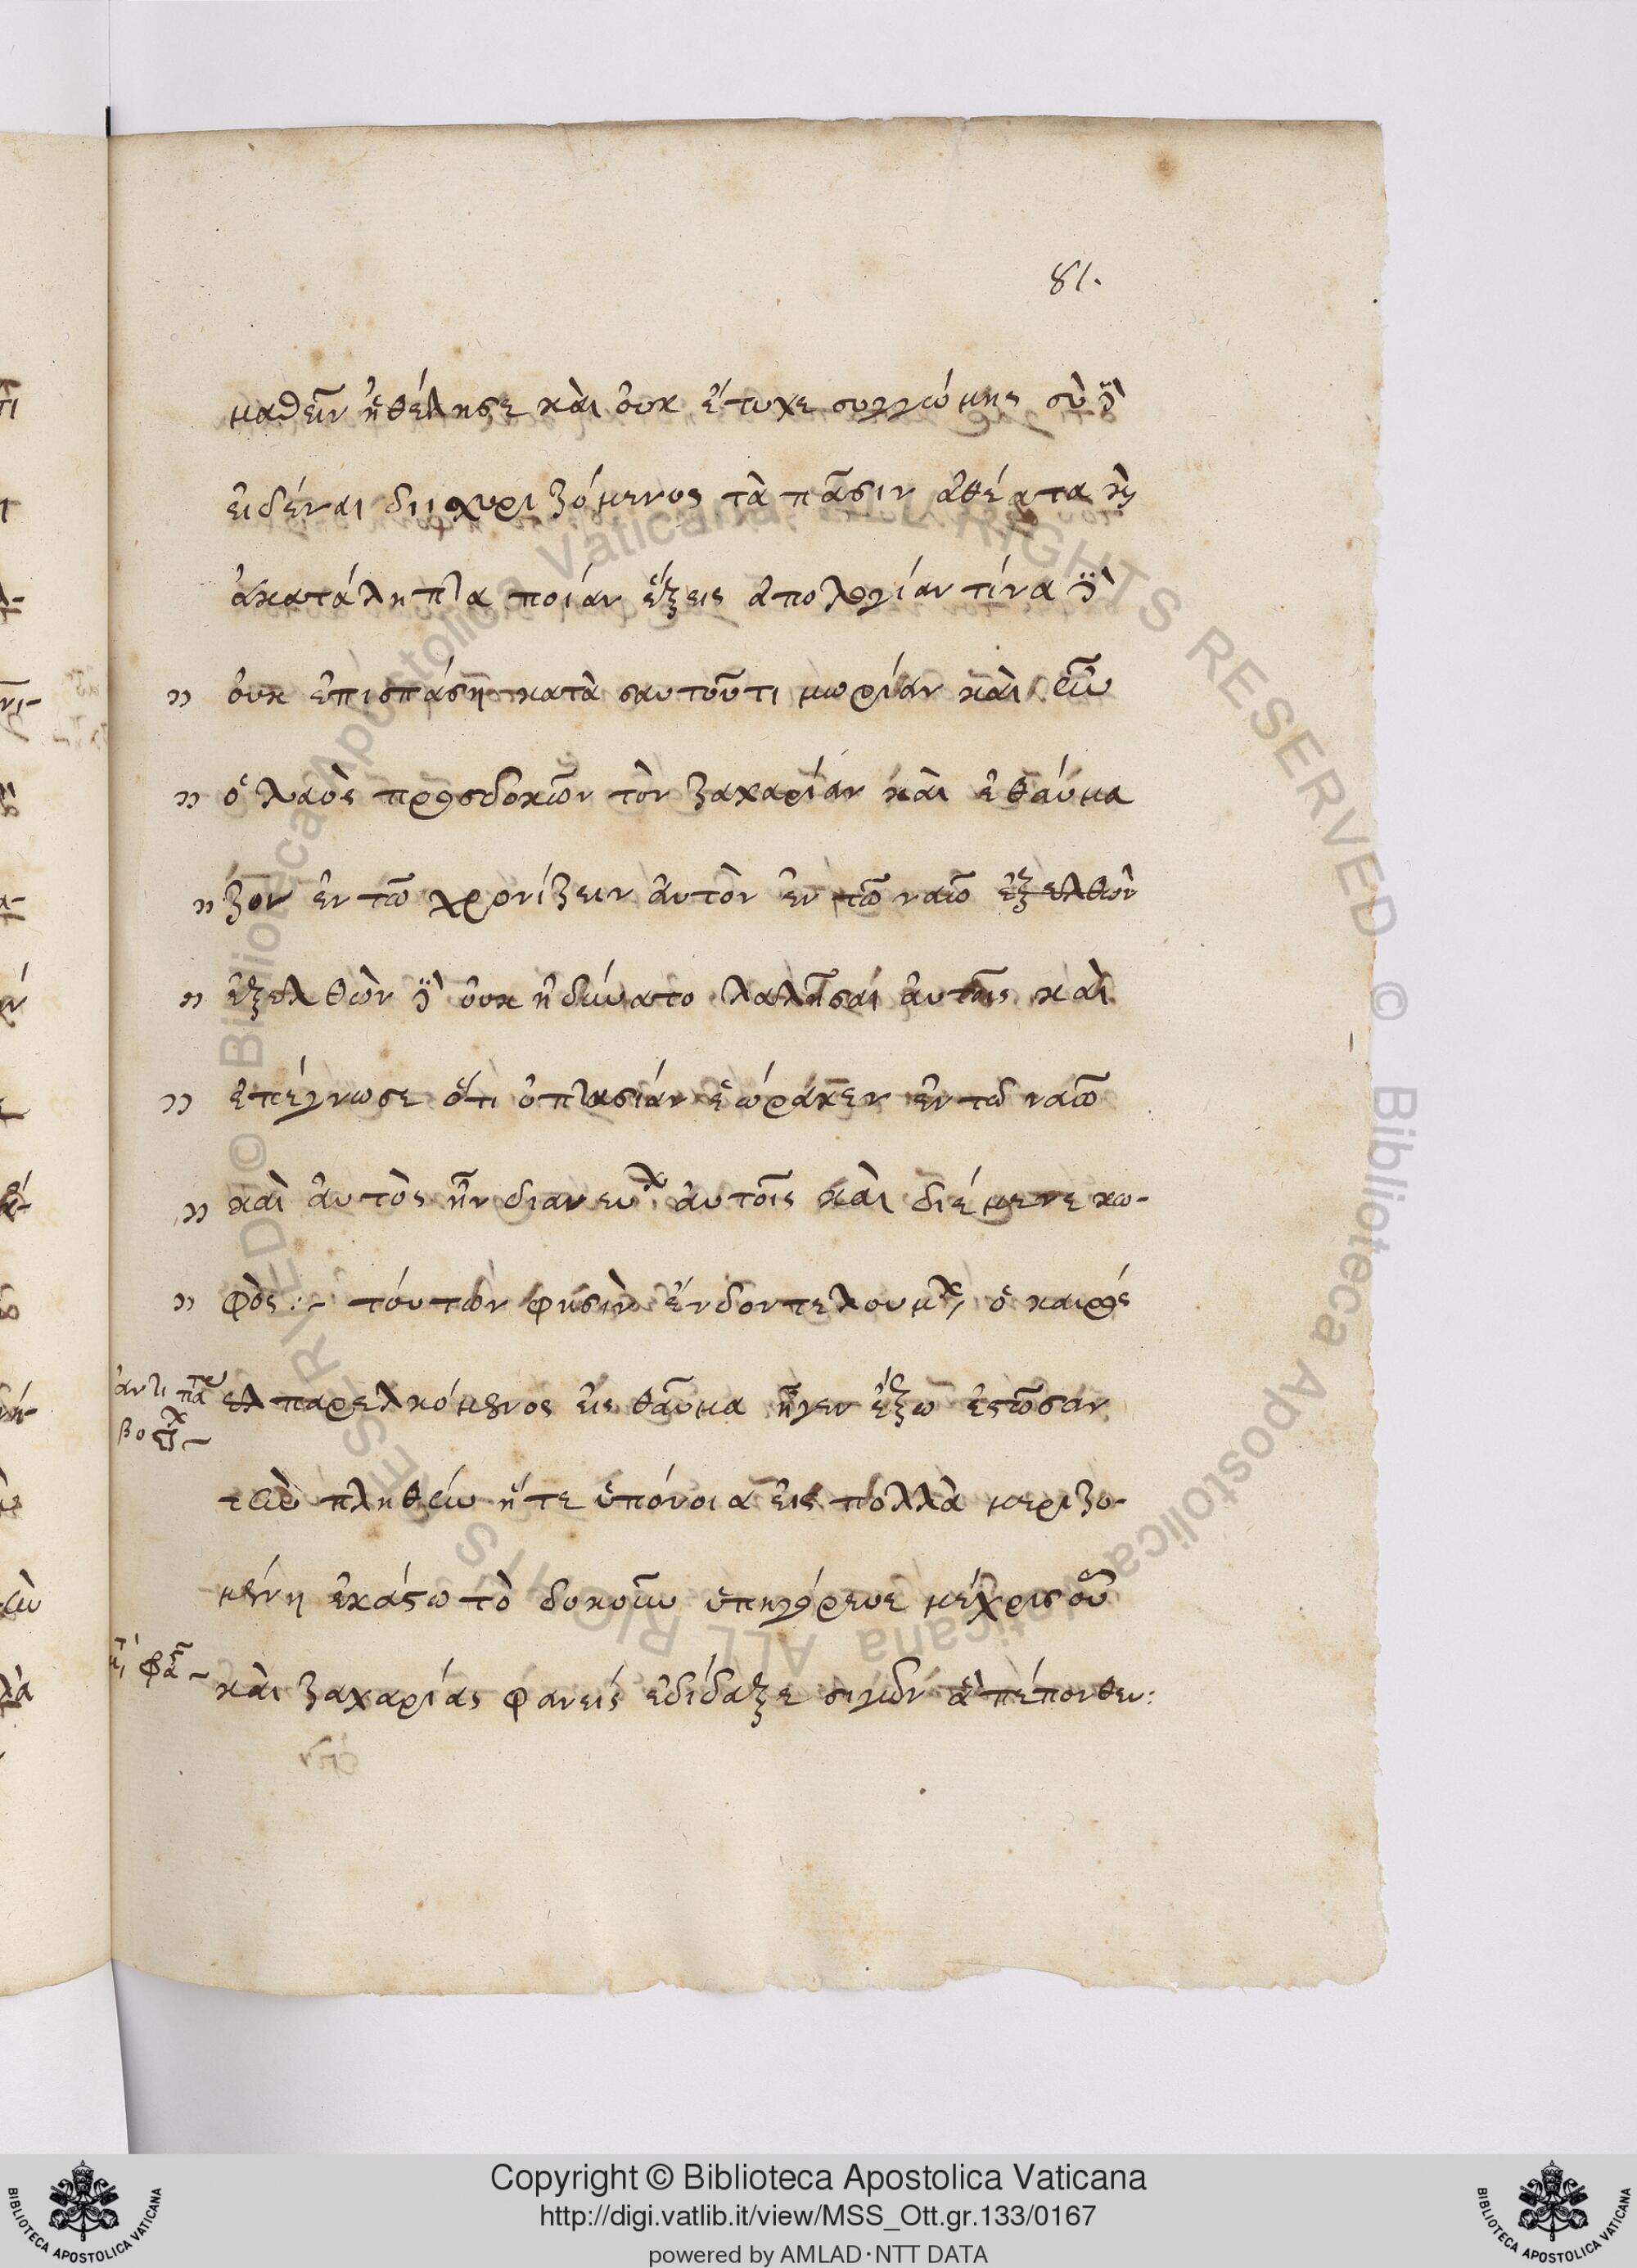 81.
μαθεῖν ἠθέλησε καὶ ὀυκ ἔτυχε συγγνώμης σὺ δὲ
ἐιδέναι διισχυριζόμενος τὰ πᾶσιν ἀθέατα κὶ
ἀκατάληπτα ποίαν ἕξεις ἀπολογίαν τίνα δὲ
" ὀυκ ἐπισπάση κατὰ σαυτοῦ τιμωρίαν καὶ ἦν
" ὁ λαὸς προσδοκῶν τὸν ζαχαρίαν καὶ ἐθάυμα
" ζον ἐν τῶ χρονίζειν ἀυτὸν ἐν τῶ ναῶ ἐξελθὼν
" ἐξελθὼν δὲ ὀυκ ἠδύνατο λαλῆσαί ἀυτοῖς καὶ
" επέγνωσε ὅτι ὀπτασίαν ἑώρακεν ἐν τῶ ναῶ
" καὶ ἀυτὸς ἦν διανευ ἀυτοῖς καὶ διέμενε κω-
" φὸς :- τόυτων φησὶν ἔνδον τελουμ ὁ καιρός
ελ παρελκόμενος ἐις θαῦμα ἦγεν ἔξω ἑστῶσαν
τὴν πληθὺν ἥτε ὑπόνοια ἐις πολλὰ μεριζο-
μένη ἑκάστω τὸ δοκοῦν ὑπηγόρευε μέχρις οὗ
καὶ ζαχαρίας φανεὶς ἐδίδαξε σιγῶν ἃ πέπονθεν:
Copyright © Biblioteca Apostolica Vaticana
http://digi.vatlib.it/view/MSS_Ott.gr.133/0167
powered by AMLAD·NTT DATA
BIBLIOTECA APOSTOLICA VATICANA
BIBLIOTECA APOSTOLICA VATICANA